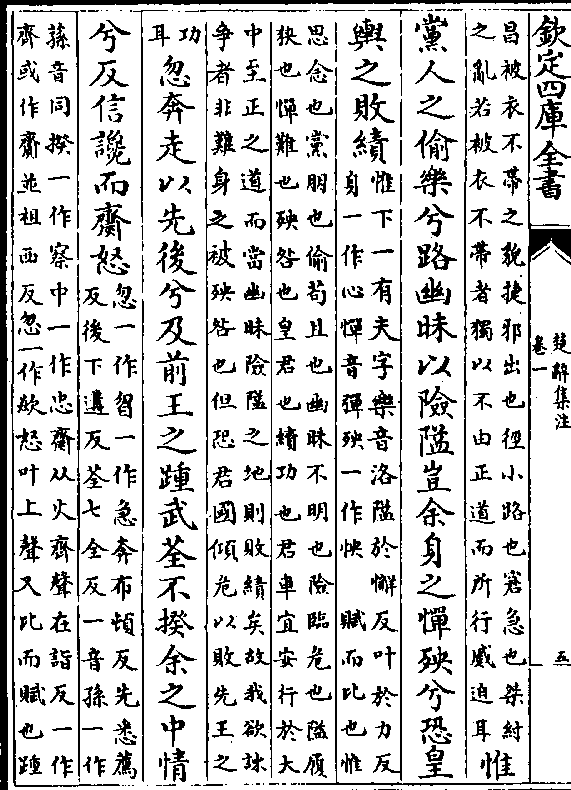 欽定四庫全書
楚辭集注
卷一
五
昌被衣不帶之貌捷邪出也徑小路也窘急也桀紂
之亂若被衣不帶者獨以不由正道而所行蹙迫耳
惟
黨人之偷樂兮路幽昧以險隘豈余身之憚殃兮恐皇
輿之敗績
惟下一有夫字樂音洛隘於懈反叶於力反
身一作心憚音彈殃一作怏 賦而比也惟
思念也黨朋也偷苟且也幽昧不明也險臨危也隘履
狹也憚難也殃咎也皇君也績功也君車宜安行於大
中至正之道而當幽昧險隘之地則敗績矣故我欲諫
爭者非難身之被殃咎也但恐君國傾危以敗先王之
功
耳
忽奔走以先後兮及前王之踵武荃不揆余之中情
兮反信讒而齌怒
忽一作曶一作急奔布頓反先悉薦
反後下遘反荃七全反一音孫一作
蓀音同揆一作察中一作忠齌从火齊聲在詣反一作
齊或作齎並祖西反忽一作欻怒叶上聲又比而賦也踵